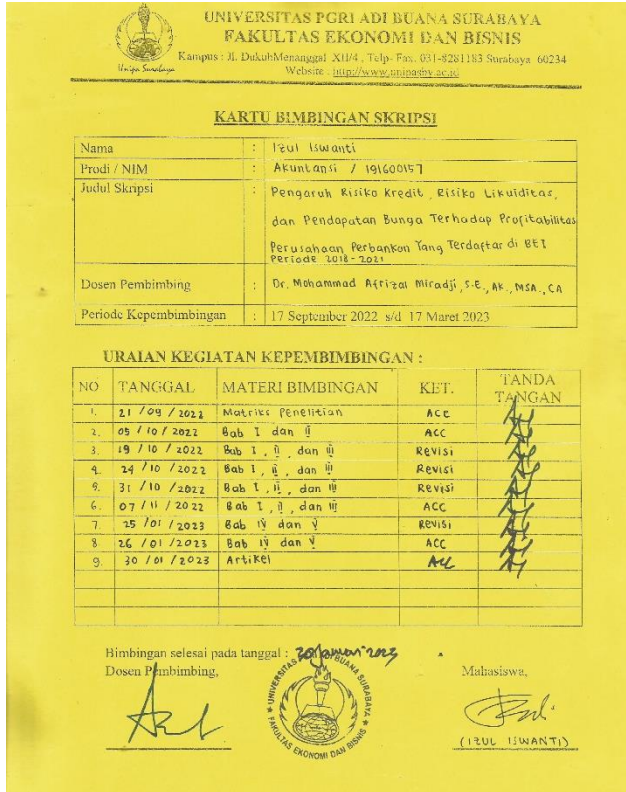 UNIVERSITAS PGRI ADI BUANA SURABAYA
FAKULTAS EKONOMI DAN BISNIS
Kampus : Jl. DukuhMenanggal XII/4 , Telp- Fax. 031-8281183 Surabaya 60234
Website : http://www.unipasby.ac.id
Unipa Surabaya
KARTU BIMBINGAN SKRIPSI
Nama : Izul Iswanti
Prodi / NIM : Akuntansi / 191600157
Judul Skripsi : Pengaruh Risiko Kredit, Risiko Likuiditas,
dan Pendapatan Bunga Terhadap Profitabilitas
Perusahaan Perbankan Yang Terdaftar di BEI
Periode 2018-2021
Dosen Pembimbing : Dr. Mohammad Afrizal Miradji, S.E., AK., MSA., CA
Periode Kepembimbingan : 17 September 2022 s/d 17 Maret 2023
URAIAN KEGIATAN KEPEMBIMBINGAN :
NO TANGGAL MATERI BIMBINGAN KET. TANDA TANGAN
1. 21 / 09 / 2022 Matriks Penelitian ACC
2. 05 / 10 / 2022 Bab I dan II ACC
3. 19 / 10 / 2022 Bab I, II, dan III Revisi
4. 24 / 10 / 2022 Bab I, II, dan III Revisi
5. 31 / 10 / 2022 Bab I, II, dan III Revisi
6. 07 / 11 / 2022 Bab I, II, dan III ACC
7. 25 / 01 / 2023 Bab IV dan V Revisi
8. 26 / 01 / 2023 Bab IV dan V ACC
9. 30 / 01 / 2023 Artikel ACC
Bimbingan selesai pada tanggal : 30 Januari 2023
Dosen Pembimbing, Mahasiswa,
UNIVERSITAS PGRI ADI BUANA SURABAYA
FAKULTAS EKONOMI DAN BISNIS
(IZUL ISWANTI)